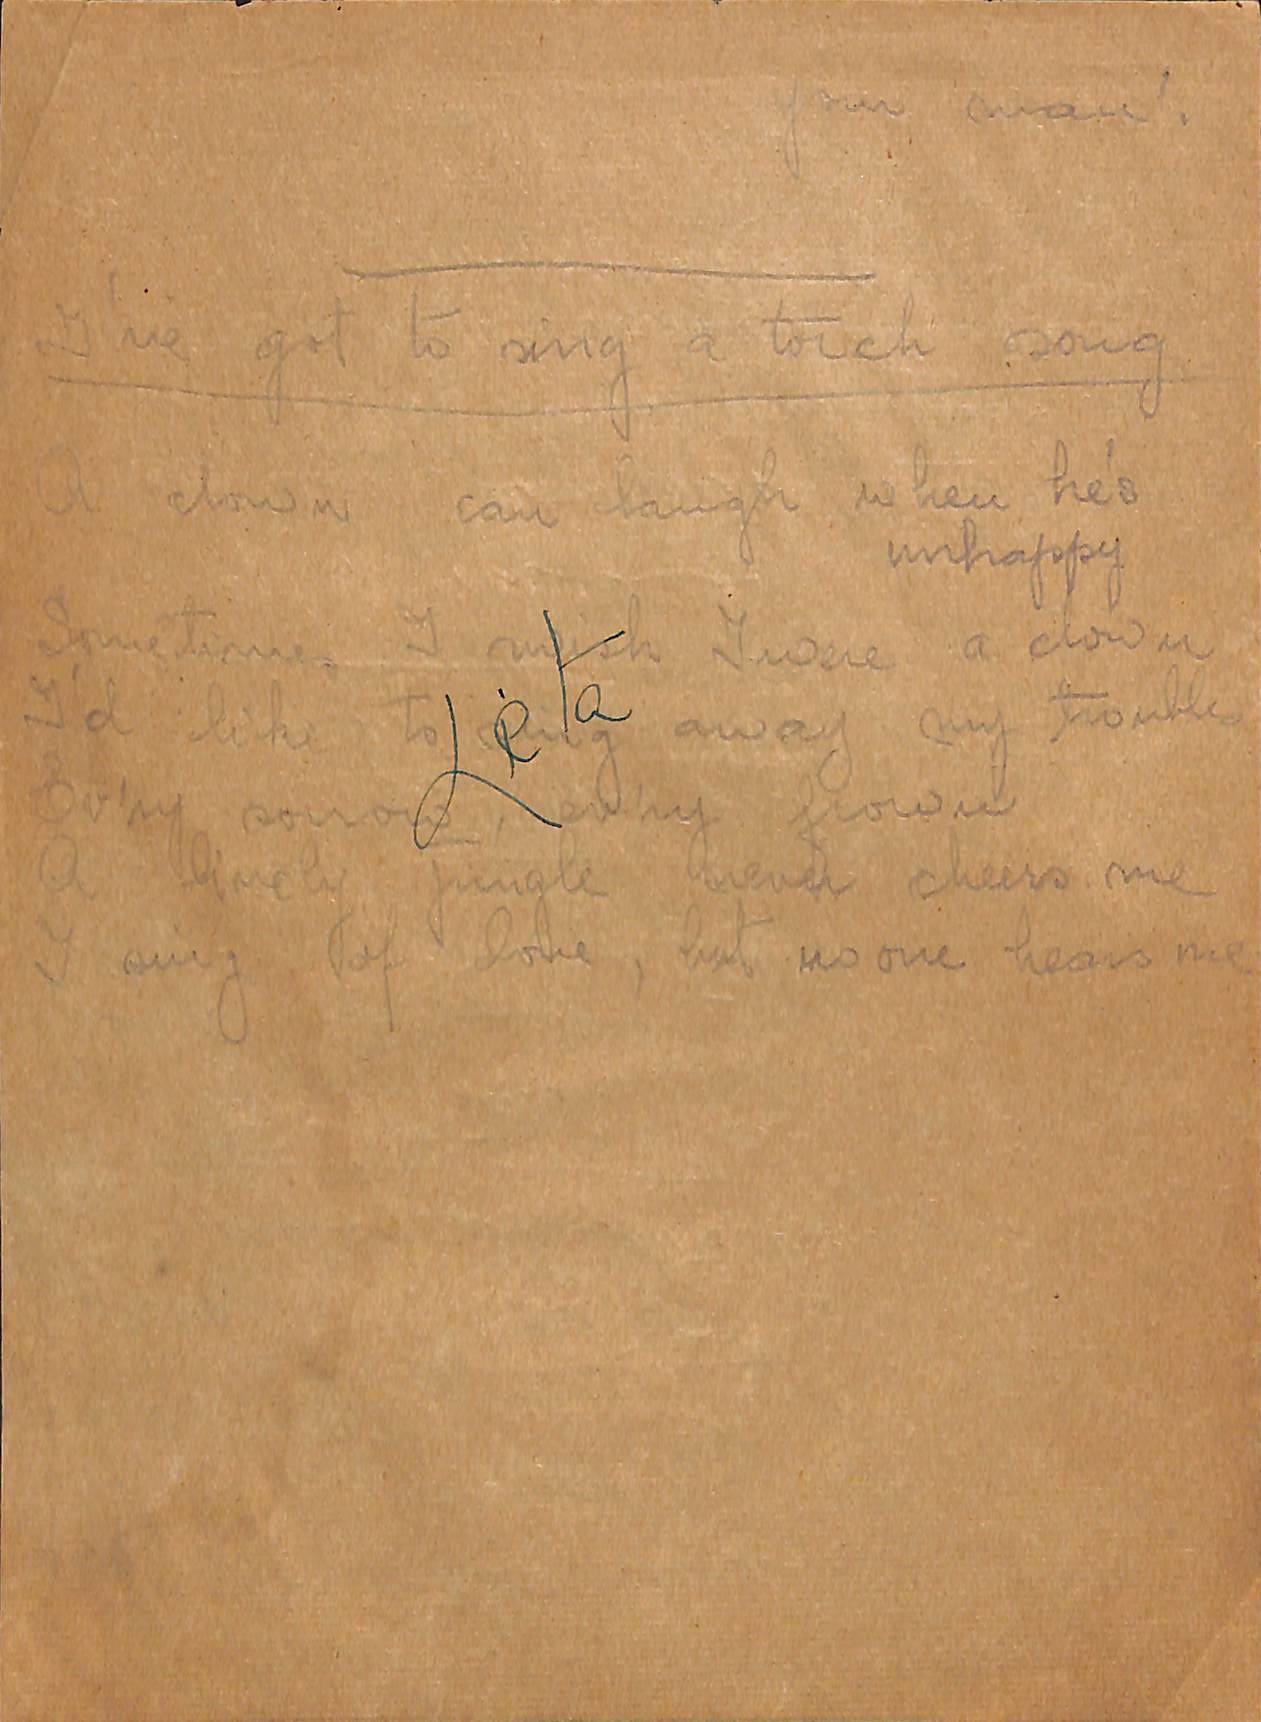 your man'.
I've got to sing a torch song
A clown can laugh when he's
unhappy
Sometimes I wish I were a clown
I'd like to sing away my troubles
Ev'ry sorrow, ev'ry frown
A lively jungle never cheers me
I sing of love, but no one hears me